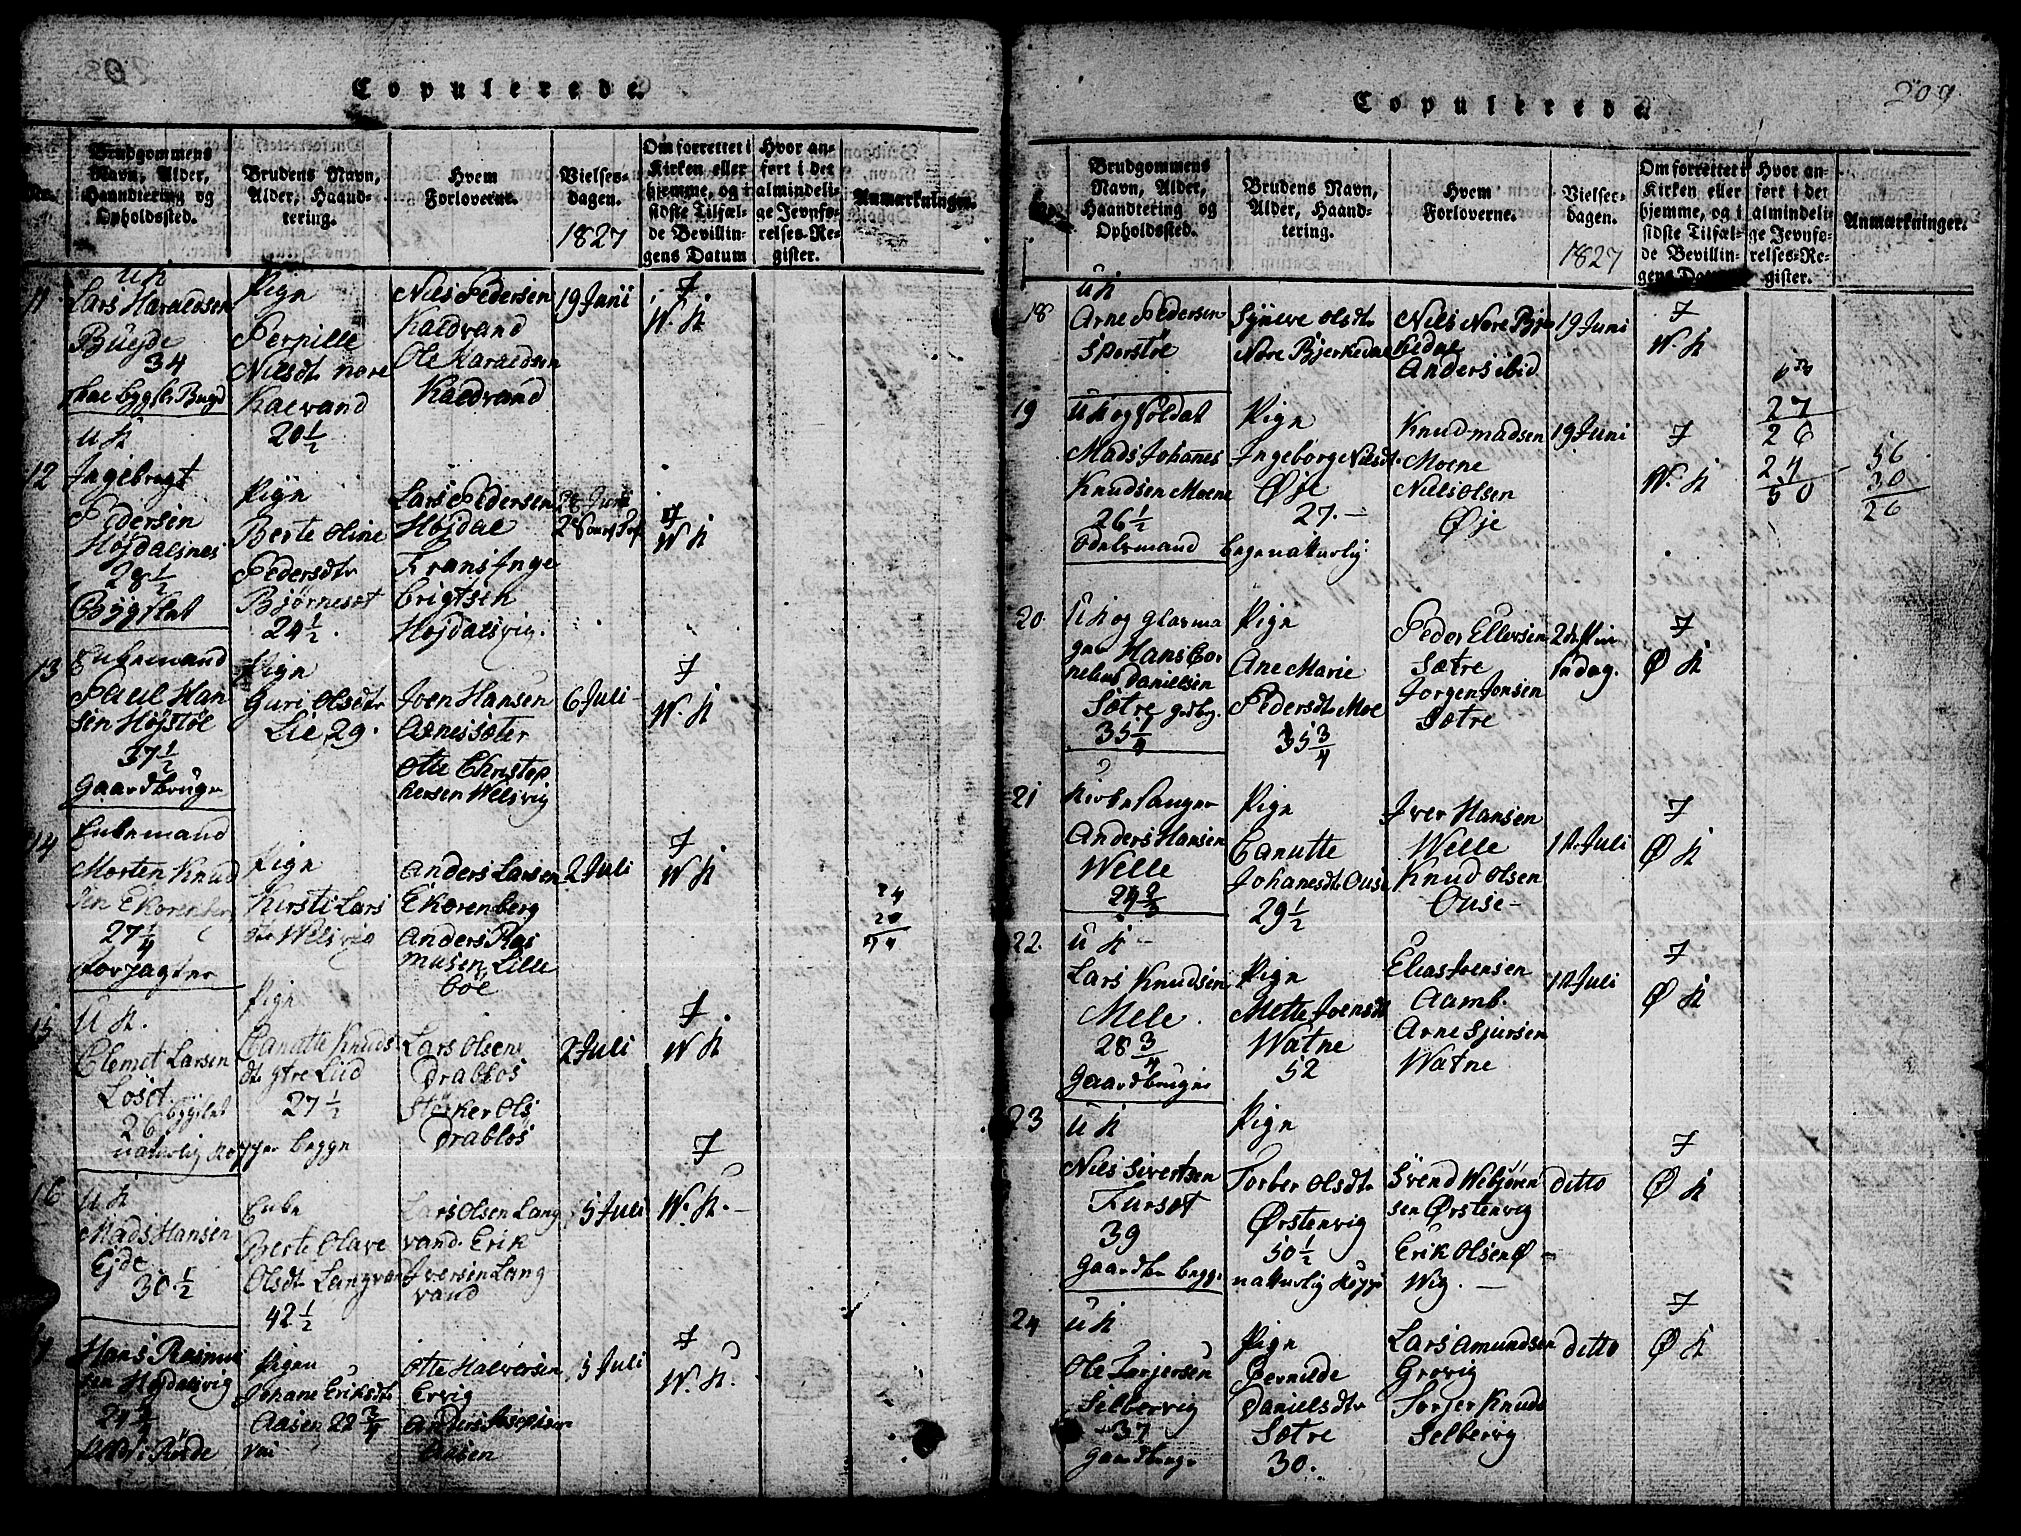 Copulerede.
No.
Brudgommens Navn, Alder, Haandtering og Opholdssted.
Brudens Navn, Alder, Haandtering.
Hvem Forloverne.
Vielsesdagen.
1827
Om forrettet i Kirken eller hjemme, og i sidste Tilfælde Bevillingens Datum
Hvor anført i det almindelige Jevnførelses-Register.
Anmærkninger.
11
U K
Lars Haraldsen
Büejde
34
Pign
Pernille
Nilsdtr Nore
Kalvand
20 1/2
Nils Pedersen
Kaldvand
Ole Haraldsen
Kaldvand
19 Juni
F
W. K
12
U K
Ingebrigt
Pedersen
Højdalsnes
28 1/2
Bÿgslat
Pign
Berte Oline
Pedersdtr
Bjørneset
24 1/2.
Lars Pedersen
Højdal
Frans Inge
brigtsen
Højdalsvig.
F
W K
13
Enkemand
Paul Han
sen Højstøe
37 1/2
Gaardbruger
Pign
Guri Olsdtr
Lie, 29.
Iven Hansen
Aarnes Sæter
Otte Christop
hersen Welsvig
6 Juli
F
W. K
14
Enkemand
Morten Knud
sen Ekorenberg
27 1/4
Pign
Kirsti Lars
dtr Welsvig
Anders Larsen
Ekorenberg
Anders Ras
musen Lille
bøe
2 Juli
F
W K
24
20
15
U K.
Clemet Larsen
Løset
26 bygslat
naturlig Kopper begge
Pign
Canutte Knuds
dtr Ytre Lid
27 1/2
Lars Olsen
Drabløs
Størker Ols
Drabløs
2 Juli
F.
W K
16
U K
Mads Hansen
Ejde
30 1/2
Enke
Berte Olave
Olsdtr Langvan
42 1/2
Lars Olsen Lang
vand. Erik
Iversen Lang
vand
5 Juli
F
W. K. -
Hans Rasmu
sen Højdalsvig
24 3/4
Pigen
Johane Eriksdtr
Aasen 22 3/4
Otte Halversen
Ervig
Anders Josepsen
Aasen
5 Juli
F
W. K.
Copulerede.
209
Brudgommens Navn, Alder, Haandtering og Opholdssted.
Brudens Navn, Alder, Haandtering.
Hvem Forloverne.
Vielsesdagen.
1827
Om forrettet i Kirken eller hjemme, og i sidste Tilfælde Bevillingens Datum
Hvor anført i det almindelige Jevnførelses-Register.
Anmærkninger.
18
U K
Arne Pedersen
Sporstøe
Syneve Olsdtr
Nore Bjerkedal
Nils Nore Bjer
kedal
Anders ibid
19 Juni
F
W K
19
U K og Soldat
Mads Johanes
Knudsen Moene
26 1/2
Odelsmand
Pign
Ingeborg Nilsdtr
Øje
27. -
begge naturlig
Knud Madsen
Moene
Niels Olsen
Øje
19 Juni
F
W. K
27
26
24
50
56
30
26
20.
U K og Glasma
ger Hans Cor
nelius Danielsen
Sætre
35 1/4
Pign
Ane Marie
Pedersdtr Moe
35 3/4
Peder Ellersen
Sætre
Jørgen Jonsen
Sætre
2den Pin
sedag.
F
Ø K
21
Kirkesanger
Anders Hansen
Welle
Pign
Canutte
Johanesdtr Ouse
29 1/2
Iver Hansen
Welle
Knud Olsen
Ouse -
1ste Juli
F
Ø K
22.
U K -
Lars Knudsen
Mele.
28 3/4
Gaardbruger
Pign
Mette Joensdt
Watne
52
Elias Joensen
Aamb.
Arne Sjursen
Watne
1ste Juli
F
Ø K
23
U K
Nils Sivertsen
Furset
39
Gaardbr begge
Pign
Torber Olsdtr
Ørstenvig
50 1/2
naturlig Kopper
Svend Webjøren
sen Ørstenvig
Erik Olsen Ø -
Wig. -
ditto
F
Ø K
24
U K
Ole Torjersen
Selbervig
37
Gaardbruger
Pign
Pernilde
Danielsdtr
Sætre
30.
Lars Amundsen
Grovig
Torjer Knuds
Selbervig
ditto
F
Ø K